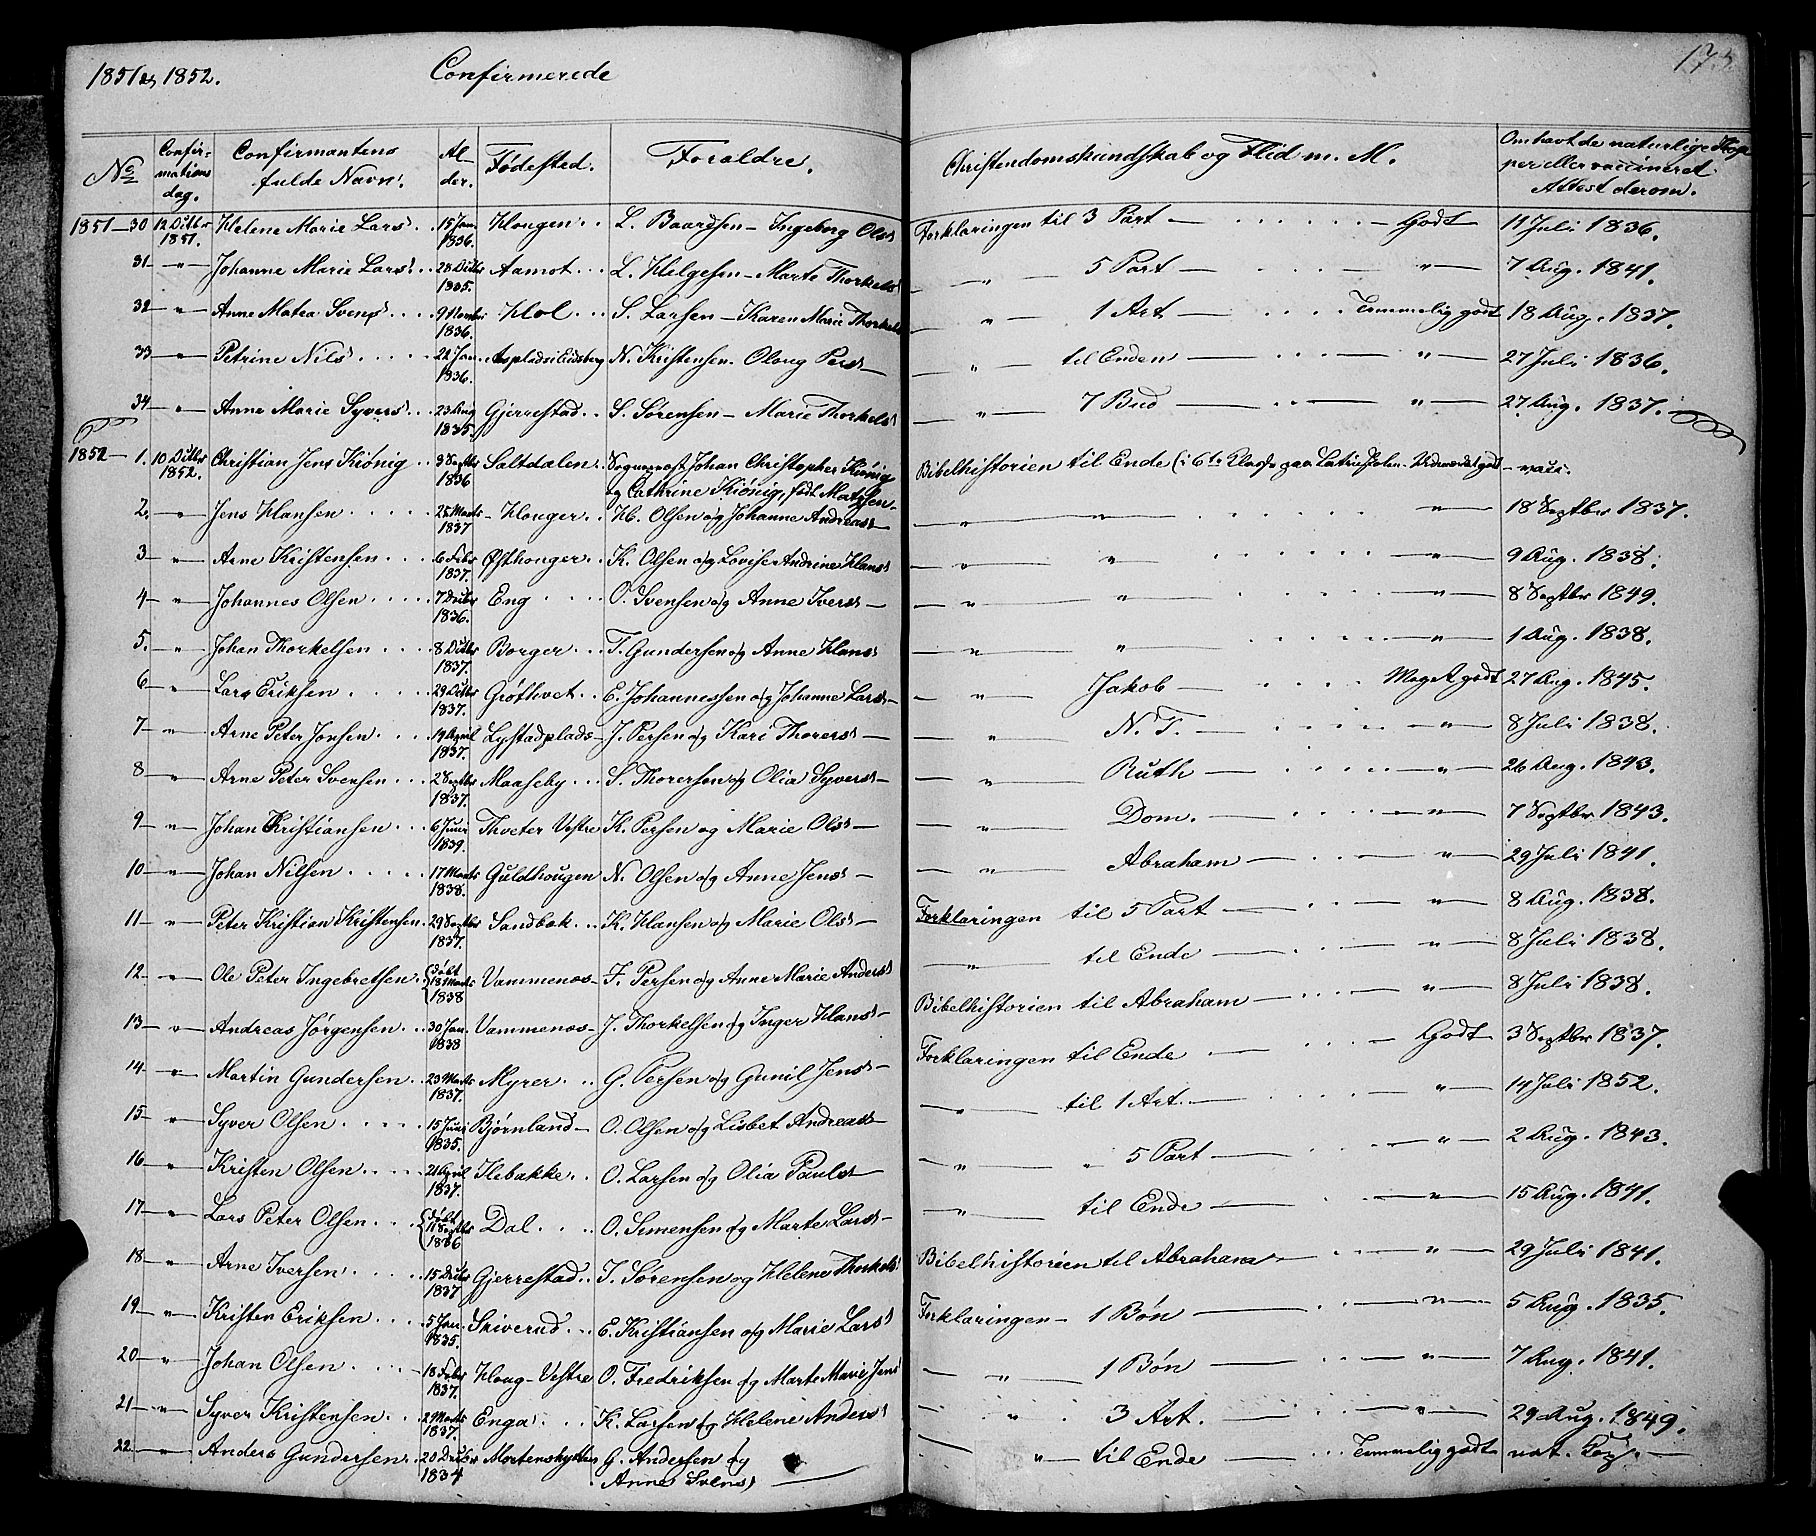 1851 og 1852. Confirmerede 175
No Confirmations dag. Confirmantens fulde Navn. Alder. Fødested. Forældre. Christendomskundskab og Flid m. M. Om havt de naturlige Kopper eller vaccineret Attest derom.
1851 – 30 12 Octbr 1851. Helene Marie Larsd 15 Jan. 1836. Hougen L. Baardsen – Ingeborg Olsd Forklaringen til 3 Part — Godt 11 Juli 1836.
31 — " — Johanne Marie Larsd 28 Octbr 1835. Aamot L. Helgesen – Marte Thorkelsd — " — 5 Part — " — 7 Aug. 1841.
32 — " — Anne Matea Svensd 9 1836. Hol S. Larsen – Karen Marie Thorkelsd — " — 1 Art — Temmelig godt 18 Aug. 1837.
33 — " — Petrine Nilsd 22 Jan. 1836. Eidsberg N. Kristensen – Oloug Persd — " — til Enden — " — 27 Juli 1836.
34 — " — Anne Marie Syversd 23 Aug 1835. Gjerrestad S. Sørensen – Marie Thorkelsd — " — 7 Bud — " — 27 Aug. 1837.
1852 – 1. 10 Octbr 1852. Christian Jens Kiønig 3 Septbr 1836 Saltdalen Sogneprest Johan Christopher Kiønig Bibelhistorien til Ende (i 6te Klasse paa Latinskolen. godt – vacc.
og Cathrine Kiønig, født Matzsen
2. — " — Jens Hansen 25 Marts 1837 Houger H. Olsen og Johanne Andreasd — " — " — " — 18 Septbr 1837.
3 — " — Arne Kristensen 6 Febr 1837. Østhouger K. Olsen og Lovise Andrine Hansd — " — " — " — 9 Aug. 1838.
4 — " — Johannes Olsen 7 Decbr 1836. Eng O. Svensen og Anne Iversd — " — " — " — 8 Septbr 1849.
5. — " — Johan Thorkelsen 8 Octbr 1837. Borger T. Gundersen og Anne Hansd — " — " — " — 1 Aug. 1838.
6 — " — Lars Eriksen 29 Octbr 1837. Grøthvet E. Johannessen og Johanne Larsd — " — Jakob — Meget godt 27 Aug. 1845.
7 — " — Arne Peter Jonsen 14 April 1837. Lystadplads J. Persen og Kari Thorersd — " — N. T. — " — 8 Juli 1838.
8 — " — Arne Peter Svensen 2 Septbr 1837. Maaseby S. Thorersen og Olia Syversd — " — Ruth — " — 26 Aug. 1843.
9 — " — Johan Kristiansen 6 Juni 1839. Thveter Vestre K. Persen og Marie Olsd — " — Dom. — " — 7 Septbr 1843.
10 — " — Johan Nilsen 17 Marts 1838. Guldhougen N. Olsen og Anne Jensd — " — Abraham — " — 29 Juli 1841.
11 — " — Peter Kristian Kristensen 29 Septbr 1837. Sandbæk K. Hansen og Marie Olsd Forklaringen til 5 Part — " — 8 Aug. 1838.
— " — til Ende — " — 8 Juli 1838.
12 — " — Ole Peter Ingebretsen født 18 Marts 1838 Vammenæs I. Persen og Anne Marie Andersd Bibelhistorien til Abraham — " — 8 Juli 1838.
13 — " — Andreas Jørgensen 30 Jan. 1838 Vammenæs J. Thorkelsen og Inger Hansd Forklaringen til Ende — Godt 3 Septbr 1837.
14 — " — Martin Gundersen 23 Marts 1837. Myrer G. Persen og Gunil Jensd — " — til 1 Art. — " — 14 Juli 1852.
15 — " — Syver Olsen 15 Juni 1835. Bjørnland O. Olsen og Lisbet Andreasd — " — " 5 Part — " — 2 Aug. 1843.
16 — " — Kristen Olsen 21 April 1837. Ilebakke O. Larsen og Olia Paulsd — " — til Ende — " — 15 Aug. 1841.
17 — " — Lars Peter Olsen født 11 Septbr 1836 Dal O. Simensen og Marte Larsd Bibelhistorien til Abraham — " — 29 Juli 1841.
18 — " — Arne Iversen 15 Octbr 1837 Gjerrestad I. Sørensen og Helene Thorkelsd Forklaringen – 1 Bøn — " — 5 Aug. 1835.
19 — " — Kristen Eriksen 5 Jan. 1835. Skiverud E. Kristiansen og Marie Larsd — " — 1 Bøn — " — 7 Aug. 1841.
20 — " — Johan Olsen 18 Febr 1837. Houg Vestre O. Fredriksen og Marte Marie Jensd — " 3 Art. — " — 29 Aug. 1849.
21 — " — Syver Kristensen 2 Marts 1837. Enga K. Larsen og Helene Andersd — " — til Ende — Temmelig godt nat. Kop.
22 — " — Anders Gundersen 20 Decbr 1834 Mortenshytten G. Andersen og
Anne Svensd